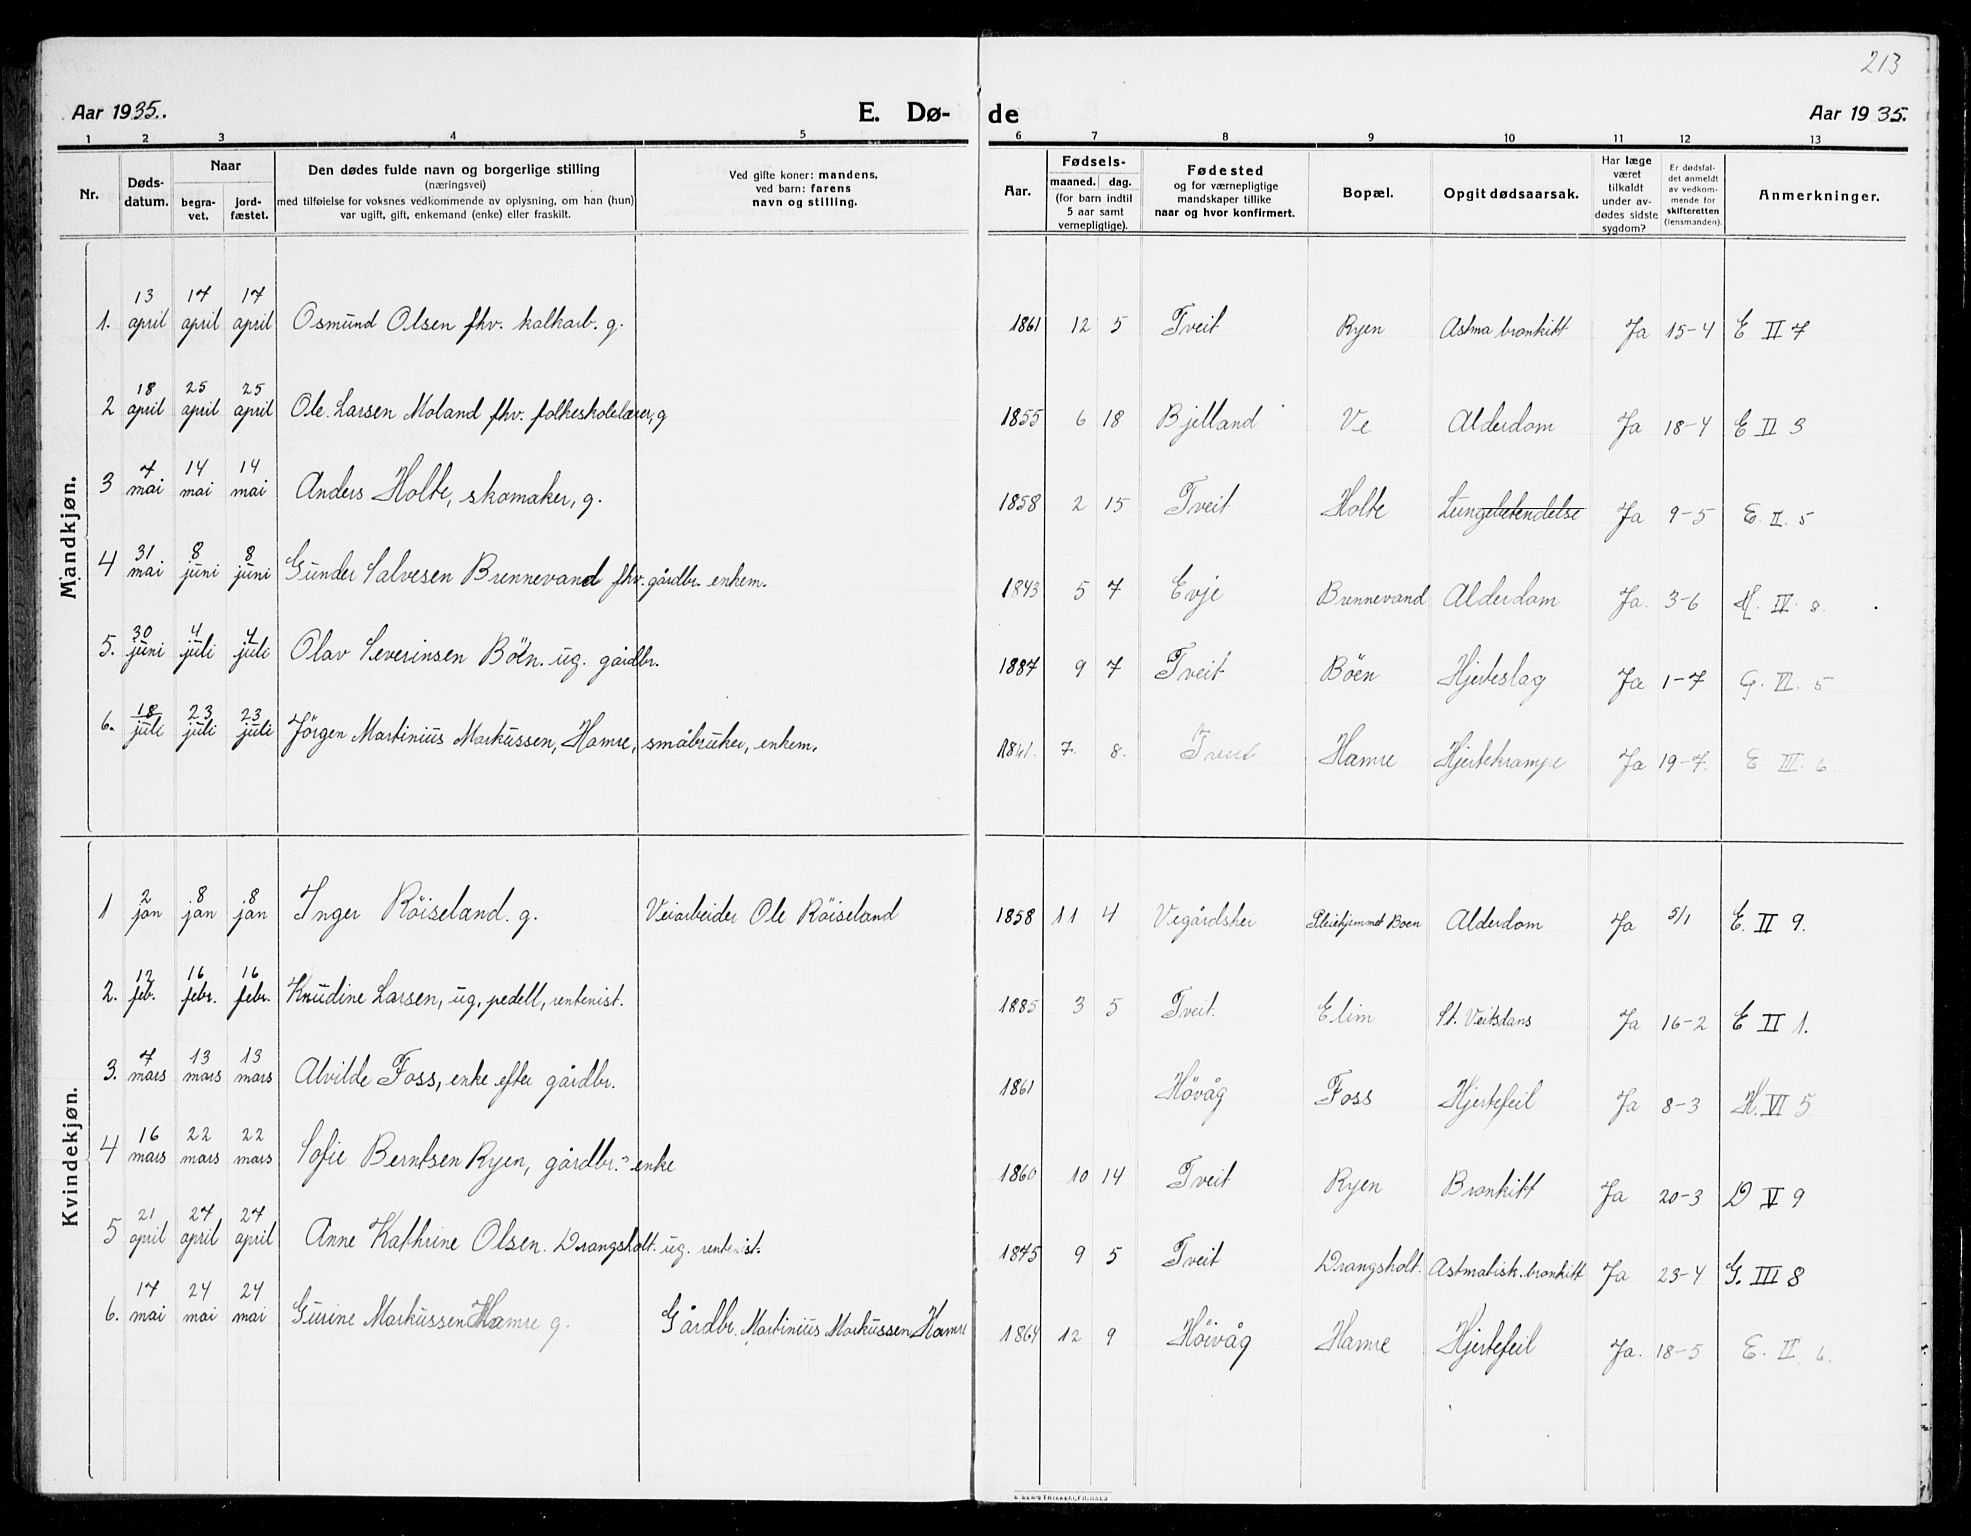 213
Aar 1935.
E. Dø-
de
Aar 1935.
1 2 3 4 5 6 7 8 9 10 11 12 13
Nr.
Døds-
datum.
Naar
begra-
vet.
jord-
fæstet.
Den dødes fulde navn og borgerlige stilling
(næringsvei)
med tilføielse for voksnes vedkommende av oplysning, om han (hun)
var ugift, gift, enkemand (enke) eller fraskilt.
Ved gifte koner: mandens,
ved barn: farens
navn og stilling.
Aar.
Fødsels-
maaned. dag.
(for barn indtil
5 aar samt
vernepligtige).
Fødested
og for værnepligtige
mandskaper tillike
naar og hvor konfirmert.
Bopæl.
Opgit dødsaarsak.
Har læge
været
tilkaldt
under av-
dødes sidste
sygdom?
Er dødsfal-
det anmeldt
av vedkom-
mende for
skifteretten
(lensmanden).
Anmerkninger.
Mandkjøn.
13 17 17
1. april april april Osmund Olsen fhv. kalkarb. g. 1861 12 5 Tveit Ryen Astma bronkitt Ja 15-4 E II 7
18 25 25
2 april april april Ole Larsen Moland fhv. folkeskolelærer, g 1855 6 18 Bjelland Ve Alderdom Ja 18-4 E II 3
7 14 14
3 mai mai mai Anders Holte, skomaker, g. 1858 2 15 Tveit Holte Lungebetendelse Ja 9-5 E. II. 5
31 8 8
4 mai juni juni Gunder Salvesen Brennevand fhv. gårdbr. enkem. 1843 5 7 Evje Brennevand Alderdom Ja. 3-6 H. IV. 8.
30 4 4
5. juni juli juli Olav Severinsen Böen. ug. gårdbr. 1887 9 7 Tveit Böen Hjerteslag Ja 1-7 G. VI. 5
18 23 23
6. juli juli juli Jörgen Martinius Markussen, Hamre, småbruker, enkem. 7. 8. Tveit Hamre Hjertekrampe Ja 19-7. E. III. 6.
Kvindekjøn.
2 8 8
1 jan jan jan Inger Röiseland. g. Veiarbeider Ole Röiseland 1858 11 4 Vegårdshei Pleiehjemmet Boen Alderdom Ja 5/1 E. II 9.
12 16 16
2. feb. febr. febr. Knudine Larsen, ug, pedell, rentenist. 1885 3 5 Tveit. Elim St. Veitsdans Ja 16-2 E II 1.
7 13 13
3. mars mars mars Alvilde Foss, enke efter gårdbr. 1861 Hövåg Foss Hjertefeil Ja 8-3 H. VI 5
16 22 22
4 mars mars mars Sofie Berntsen Ryen, gårdbr.s enke 1860 10 14 Tveit Ryen Bronkitt Ja 20-3 D V 9
21 27 27
5 april april april Anne Kathrine Olsen. Drangsholt. ug. rentenist. 1845 9 5 Tveit Drangsholt. Astmatisk. bronkitt Ja 23-4 G. III 8
17 24 24
6. mai mai mai Gurine Markussen Hamre g. Gårdbr. Martinius Markussen Hamre 1864 12 9 Höivåg Hamre Hjertefeil Ja. 18-5 E. II. 6.